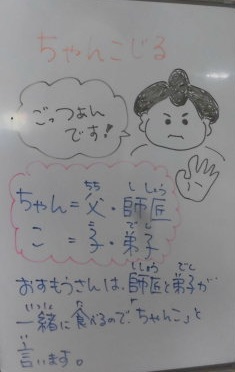 ちゃんこじる
ごっつぁん
です!
ちゃん=父・師匠
ちち し しょう
こ =子・弟子
こ で し
おすもうさんは、師匠と弟子が
ししょう でし
一緒に食べるので「ちゃんこ」と
いっしょ た
言います。
い